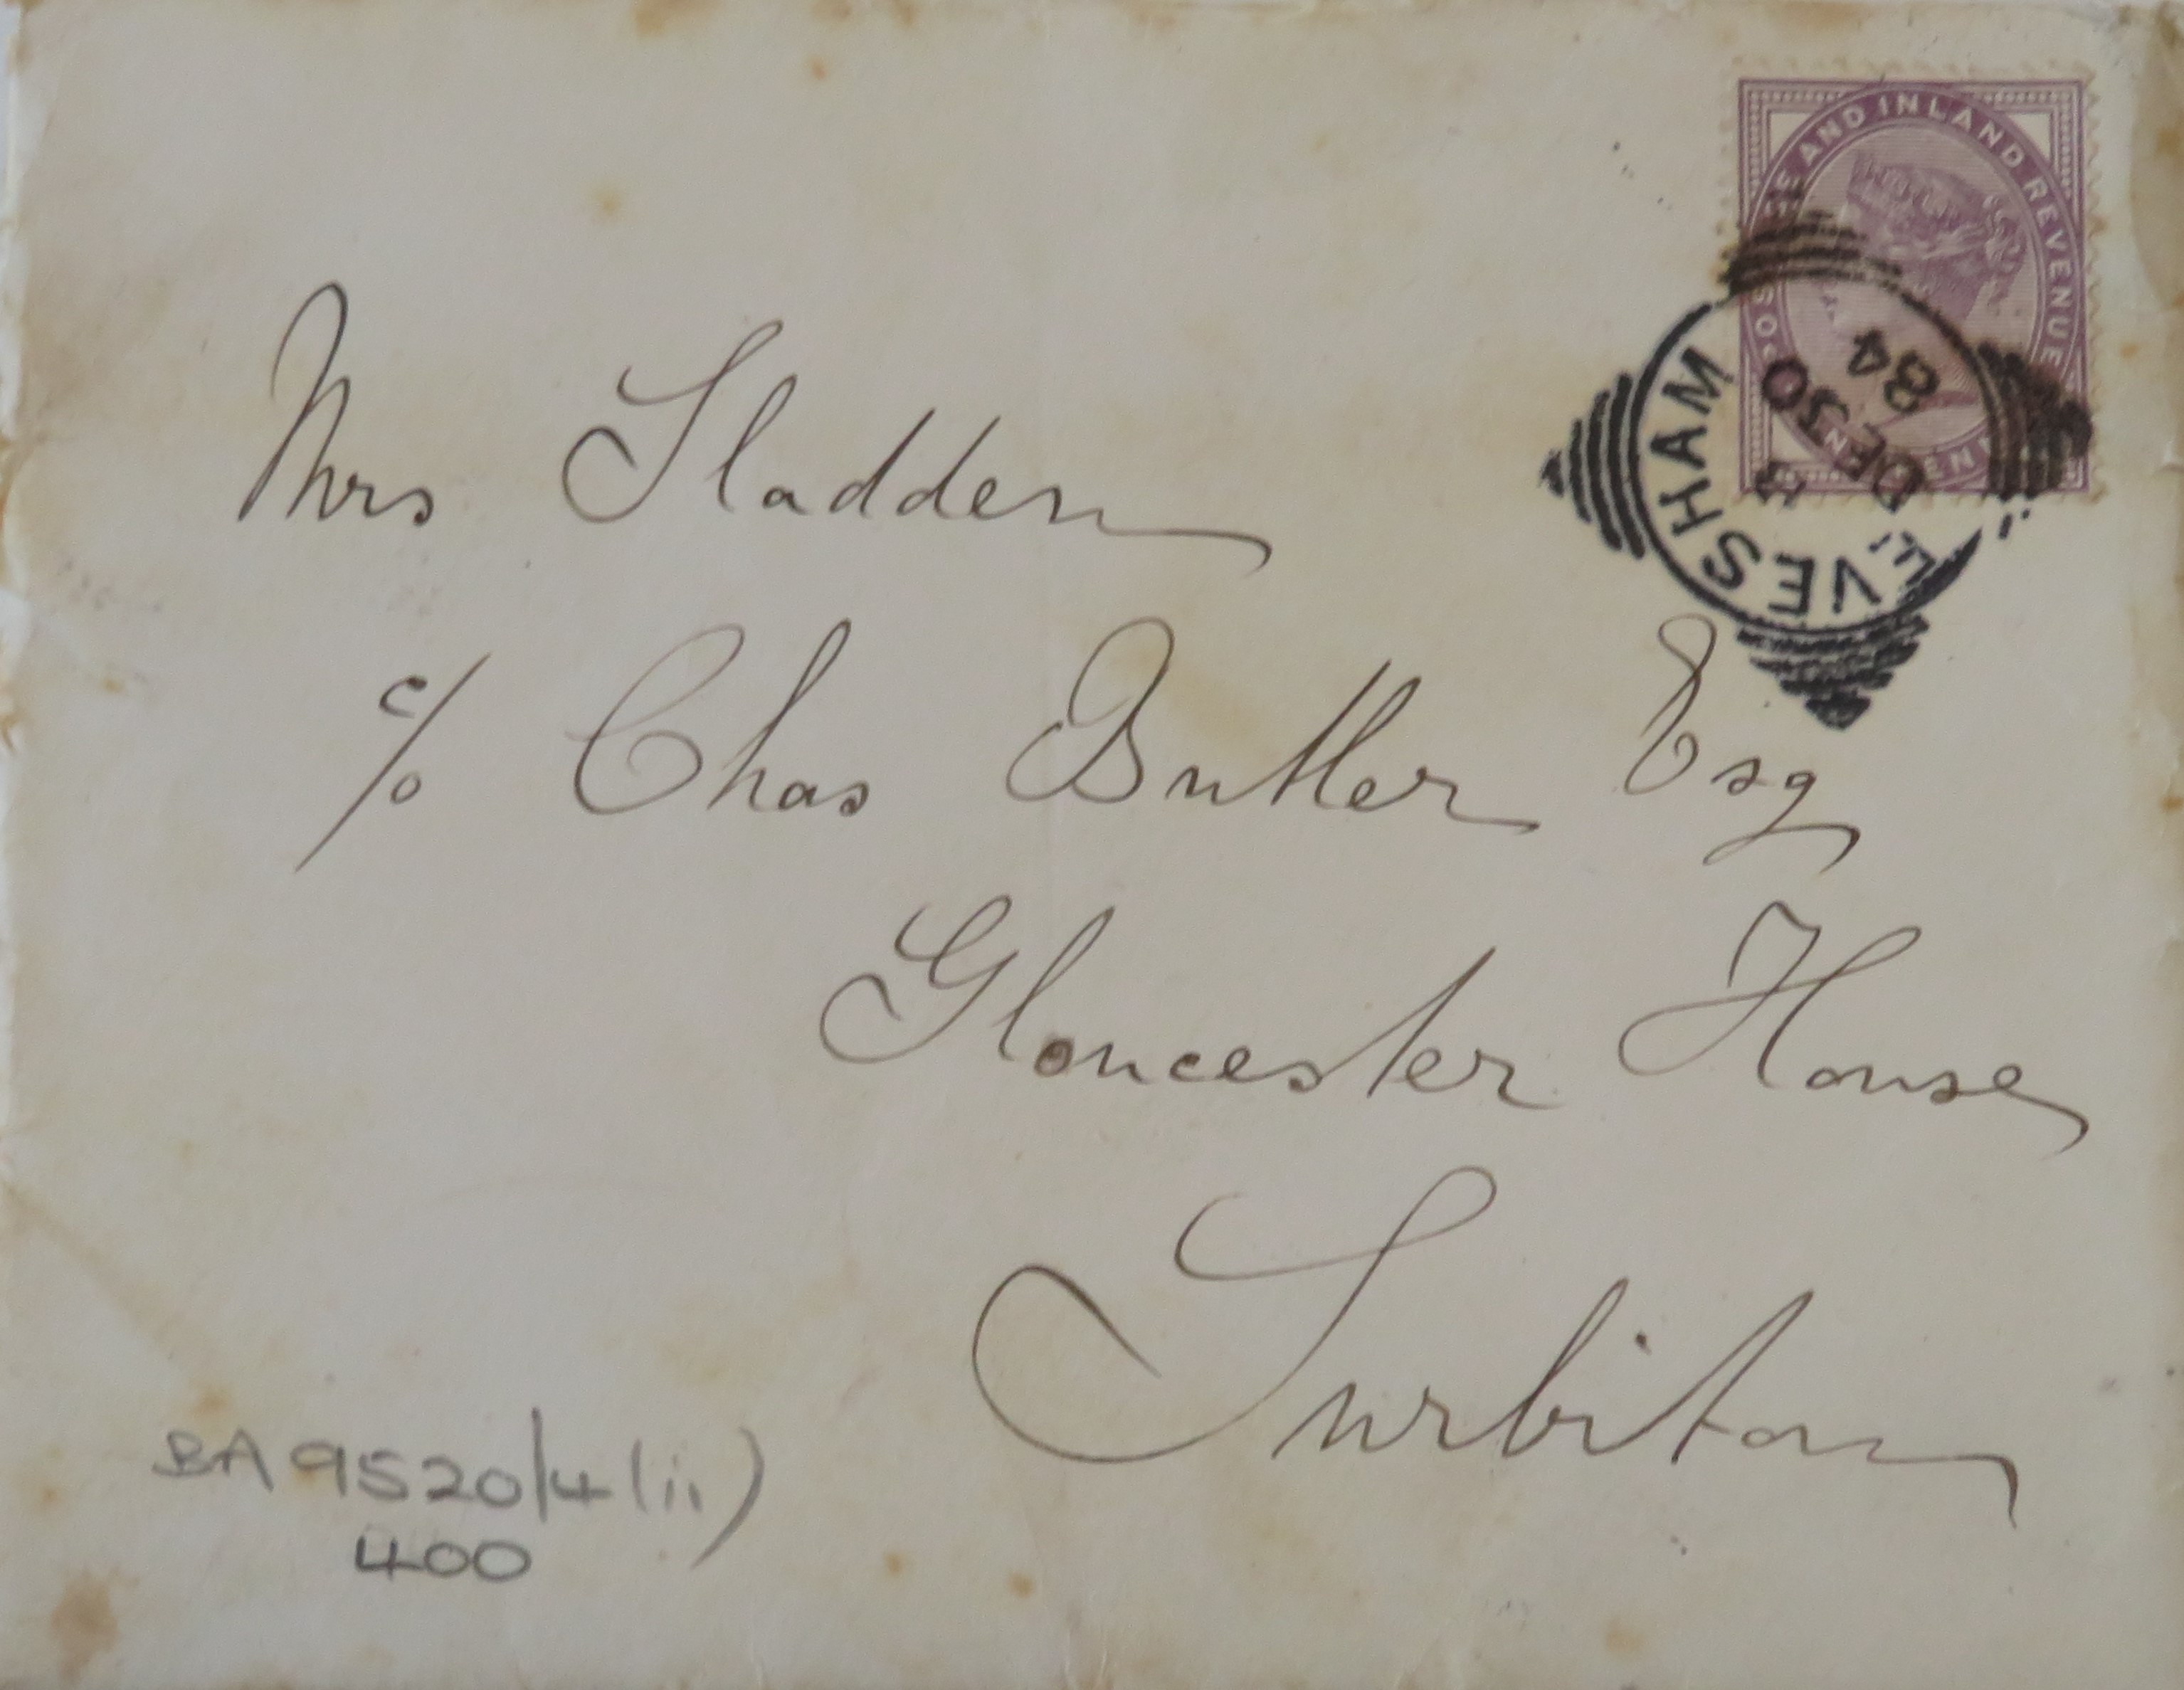 AND INLAND REVENUE
EVESHAM
DE 30
84
Mrs Sladden
c/o Chas Butler Esq
Gloucester House
Surbiton
BA 9520/4(ii)
400